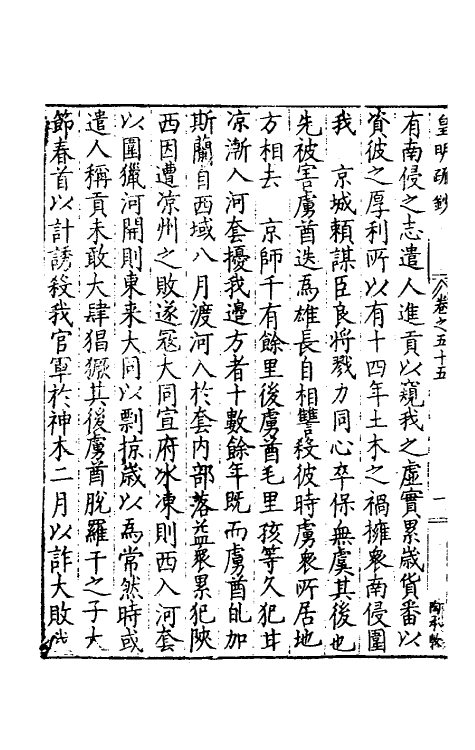 皇明疏鈔 卷之五十五 一
有南侵之志遣人進貢以窺我之虛實累歲貨番以
資彼之厚利所以有十四年土木之禍擁衆南侵圍
我 京城賴謀臣良將戮力同心卒保無虞其後也
先被害虜酋迭爲雄長自相讐殺彼時虜衆所居地
方相去 京師千有餘里後虜酋毛里孩等久犯甘
凉漸入河套擾我邊方者十數餘年既而虜酋乩加
斯蘭自西域八月渡河入於套内部落益衆累犯陝
西因遭凉州之敗遂寇大同宣府氷凍則西入河套
以圍獵河開則東来大同以剽掠歲以爲常然時或
遣人稱貢未敢大肆猖獗其後虜酋脫羅干之子大
節春首以計誘殺我官軍於神木二月以詐大敗